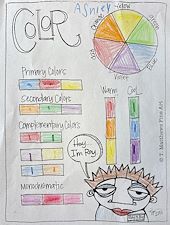 COLOR
Ashley
Yellow
Orange
Green
Red
Blue
Violet
Primary Colors
Secondary Colors
Complementary Colors
Monochromatic
Warm
Cool
Hey...
I'm Roy.
© T. Matthews Fine Art